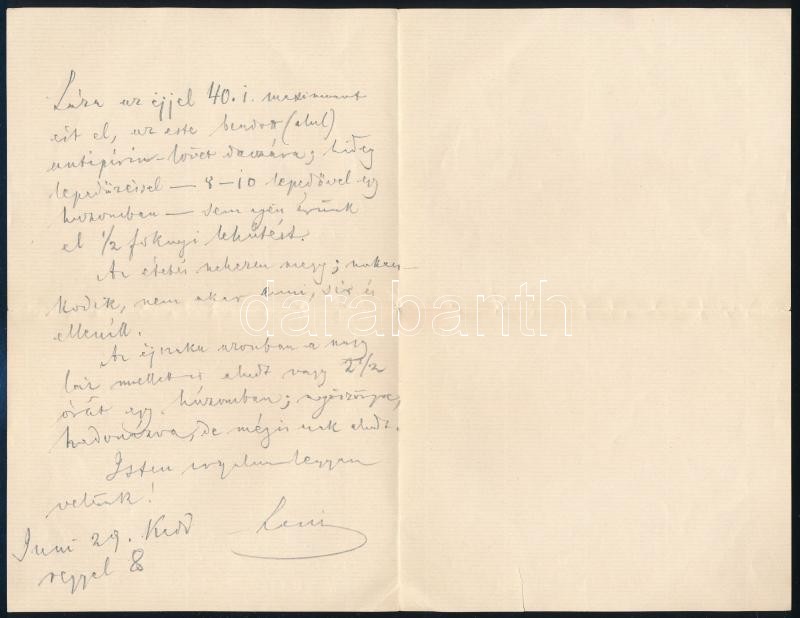 Láza az éjjel 40.1. maximumot
ért el, az este beadott (alul)
antipirin dacára; hideg
lepedőzéssel — 8–10 lepedővel egy
huzomban — sem igen érünk
el 1/2 foknyi lehűtést.
Az etetés nehezen megy;
kodik, nem akar enni, sír és
ellenáll.
Az éjszaka azonban a nagy
láz mellett is aludt vagy 2 1/2
órát egy húzomban;
hadonázva, de mégis csak aludt.
Isten irgalma legyen
velünk!
Juni 29. Kedd
reggel 8
darabanth